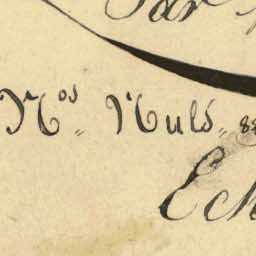 Par
Nos. Nuls.
Ech